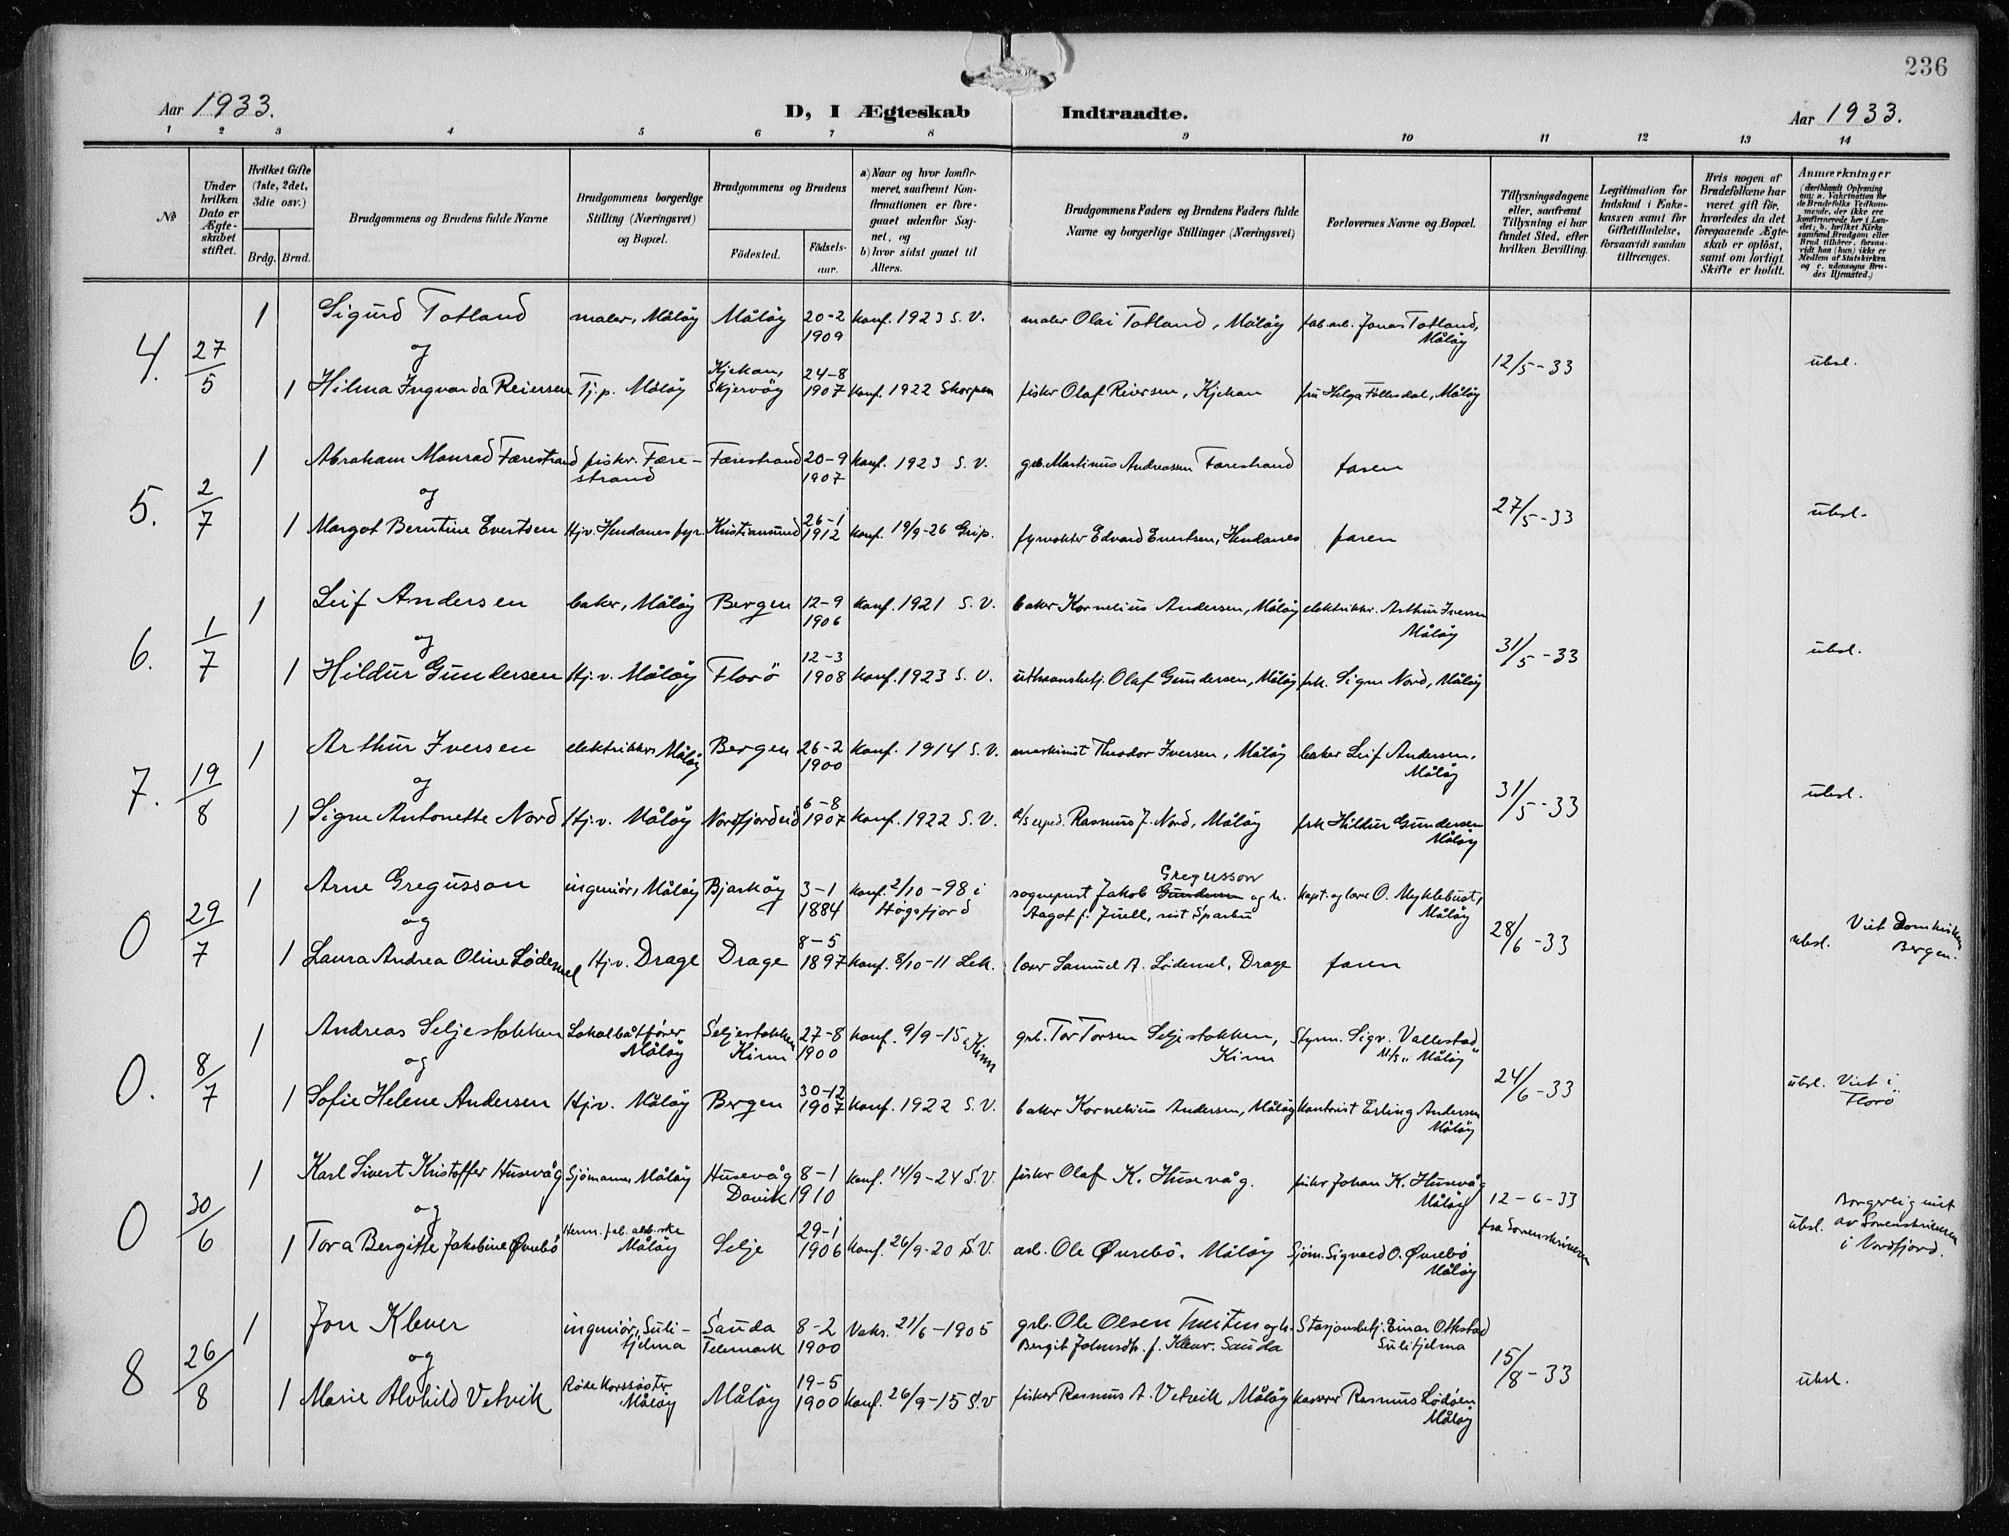 236
Aar 1933.
D, I Ægteskab Indtraadte.
Aar 1933.
1 2 3 4 5 6 7 8 9 10 11 12 13 14
No
Under hvilken Dato er Ægteskabet stiftet.
Hvilket Gifte (1ste, 2det, 3die osv.)
Brdg. Brud.
Brudgommens og Brudens fulde Navne
Brudgommens borgerlige Stilling (Næringsvei) og Bopæl.
Brudgommens og Brudens
Fødested.
Fødselsaar.
a) Naar og hvor konfirmeret, saafremt Konfirmationen er foregaaet udenfor Sognet, og
b) hvor sidst gaaet til Alters.
Brudgommens Faders og Brudens Faders fulde Navne og borgerlige Stillinger (Næringsvei)
Forlovernes Navne og Bopæl.
Tillysningsdagene eller, saafremt Tillysning ei har fundet Sted, efter hvilken Bevilling.
Legitimation for Indskud i Enkekassen samt for Giftetilladelse, forsaavidt saadan tiltrænges.
Hvis nogen af Brudefolkene har været gift før, hvorledes da det foregaaende Ægteskab er opløst, samt om lovligt Skifte er holdt.
Anmærkninger
(deriblandt Oplysning om: a. Vakcination for de Brudefolks Vedkommende, der ikke ere konfirmerede her i Landet; b. hvilket Kirkesamfund Brudgom eller Brud tilhører, forsaavidt han (hun) ikke er Medlem af Statskirken og c. udensogns Brudes Hjemsted.)
4. 27/5
1 Sigurd Totland maler, Måløy Måløy 20-2 1909 konf. 1923 S.V. maler Olai Totland, Måløy fab.arb. Jonas Totland, Måløy
og
12/5-33 ubsl.
1 Hilma Ingvarda Reiersen Tj.p. Måløy Kjekan, Skjervøy 24-8 1907 konf. 1922 Skorpen fisker Olaf Reiersen, Kjekan fru Helga Føllesdal, Måløy
5. 2/7
1 Abraham Monrad Færestrand fiskr. Færestrand Færestrand 20-9 1907 konf. 1923 S.V. grb. Martinus Andreassen Færestrand faren
og
27/5-33 ubsl.
1 Margot Berntine Evertsen Hj.v. Hendanes fyr. Kristiansund 26-1 1912 konf. 19/9-26 Grip. fyrvokter Edvard Evertsen, Hendanes faren
6. 1/7
1 Leif Andersen baker, Måløy Bergen 12-9 1906 konf. 1921 S.V. baker Kornelius Andersen, Måløy elektrikker. Arthur Iversen Måløy
og
31/5-33 ubsl.
1 Hildur Gundersen Hj.v. Måløy Florö 12-3 1908 konf. 1923 S.V. Olaf Gundersen, Måløy frk. Signe Nord, Måløy
7. 19/8
1 Arthur Iversen elektrikker Måløy Bergen 26-2 1900 konf. 1914 S.V. maskinist Theodor Iversen, Måløy baker Leif Andersen, Måløy
og
31/5-33 ubsl.
1 Signe Antonette Nord Hj.v. Måløy Nordfjordeid 6-8 1907 konf. 1922 S.V. d/s exped. Rasmus J. Nord, Måløy frk Hildur Gundersen Måløy
0 29/7
1 Arne Gregusson ingeniör, Måløy Bjarköy 3-1 1884 konf. 2/10-98 i Høgsfjord sogneprest Jakob Gregusson og h. Aagot f. Juell, Sparbu kapt. og lærer O. Myklebust, Måløy
og
28/6-33 ubsl. Viet Domkirken Bergen.
1 Laura Andrea Oline Lødemel Hj.v. Drage Drage 8-5 1897 konf. 8/10-11 Lek. lærer Samuel A. Lødemel, Drage faren
0. 8/7
1 Andreas Seljestokken Lokalbåtfører Måløy Seljestokken Kinn 27-8 1900 konf. 9/9-15 i Kinn grb. Tor Torsen Seljestokken, Kinn Styrm. Sigv. Vallestad M/s „Måløy"
og
24/6-33 ubsl. Viet i Florø
1 Sofie Helene Andersen Hj.v. Måløy Bergen 30-12 1907 konf. 1922 S.V. baker Kornelius Andersen, Måløy kontorist Erling Andersen Måløy
0 30/6
1 Karl Sivert Kristoffer Husevåg Sjömann Måløy Husevåg Davik 8-1 1910 konf. 14/9-24 S.V. fisker Olaf K. Husevåg. fisker Johan K. Husevåg Måløy
og
12-6-33 fra Sorenskriveren ubsl. Borgerlig viet av Sorenskriveren i Nordfjord.
1 Tora Bergitte Jakobine Øvrebö Herm. fab. arb.ske Måløy Selje 29-1 1906 konf. 26/9-20 S.V. arb. Ole Øvrebö. Måløy Sjöm. Sigvald O. Øvrebö Måløy
8 26/8
1 Jon Klever ingeniör, Sulitjelma Sauda Telemark 8-2 1900 Vaks. 21/6-1905 grb. Ole Olsen Tveiten og h. Bergit Johnsdtr. f. Klever. Sauda Stasjonsbetj. Einar Otkstad Sulitjelma
og
15/8-33 ubsl.
1 Marie Alvhild Vetvik Røde Korssøster Måløy Måløy 19-5 1900 konf. 26/9-15 S.V fisker Rasmus A. Vetvik, Måløy kasserer Rasmus Lødøen Måløy